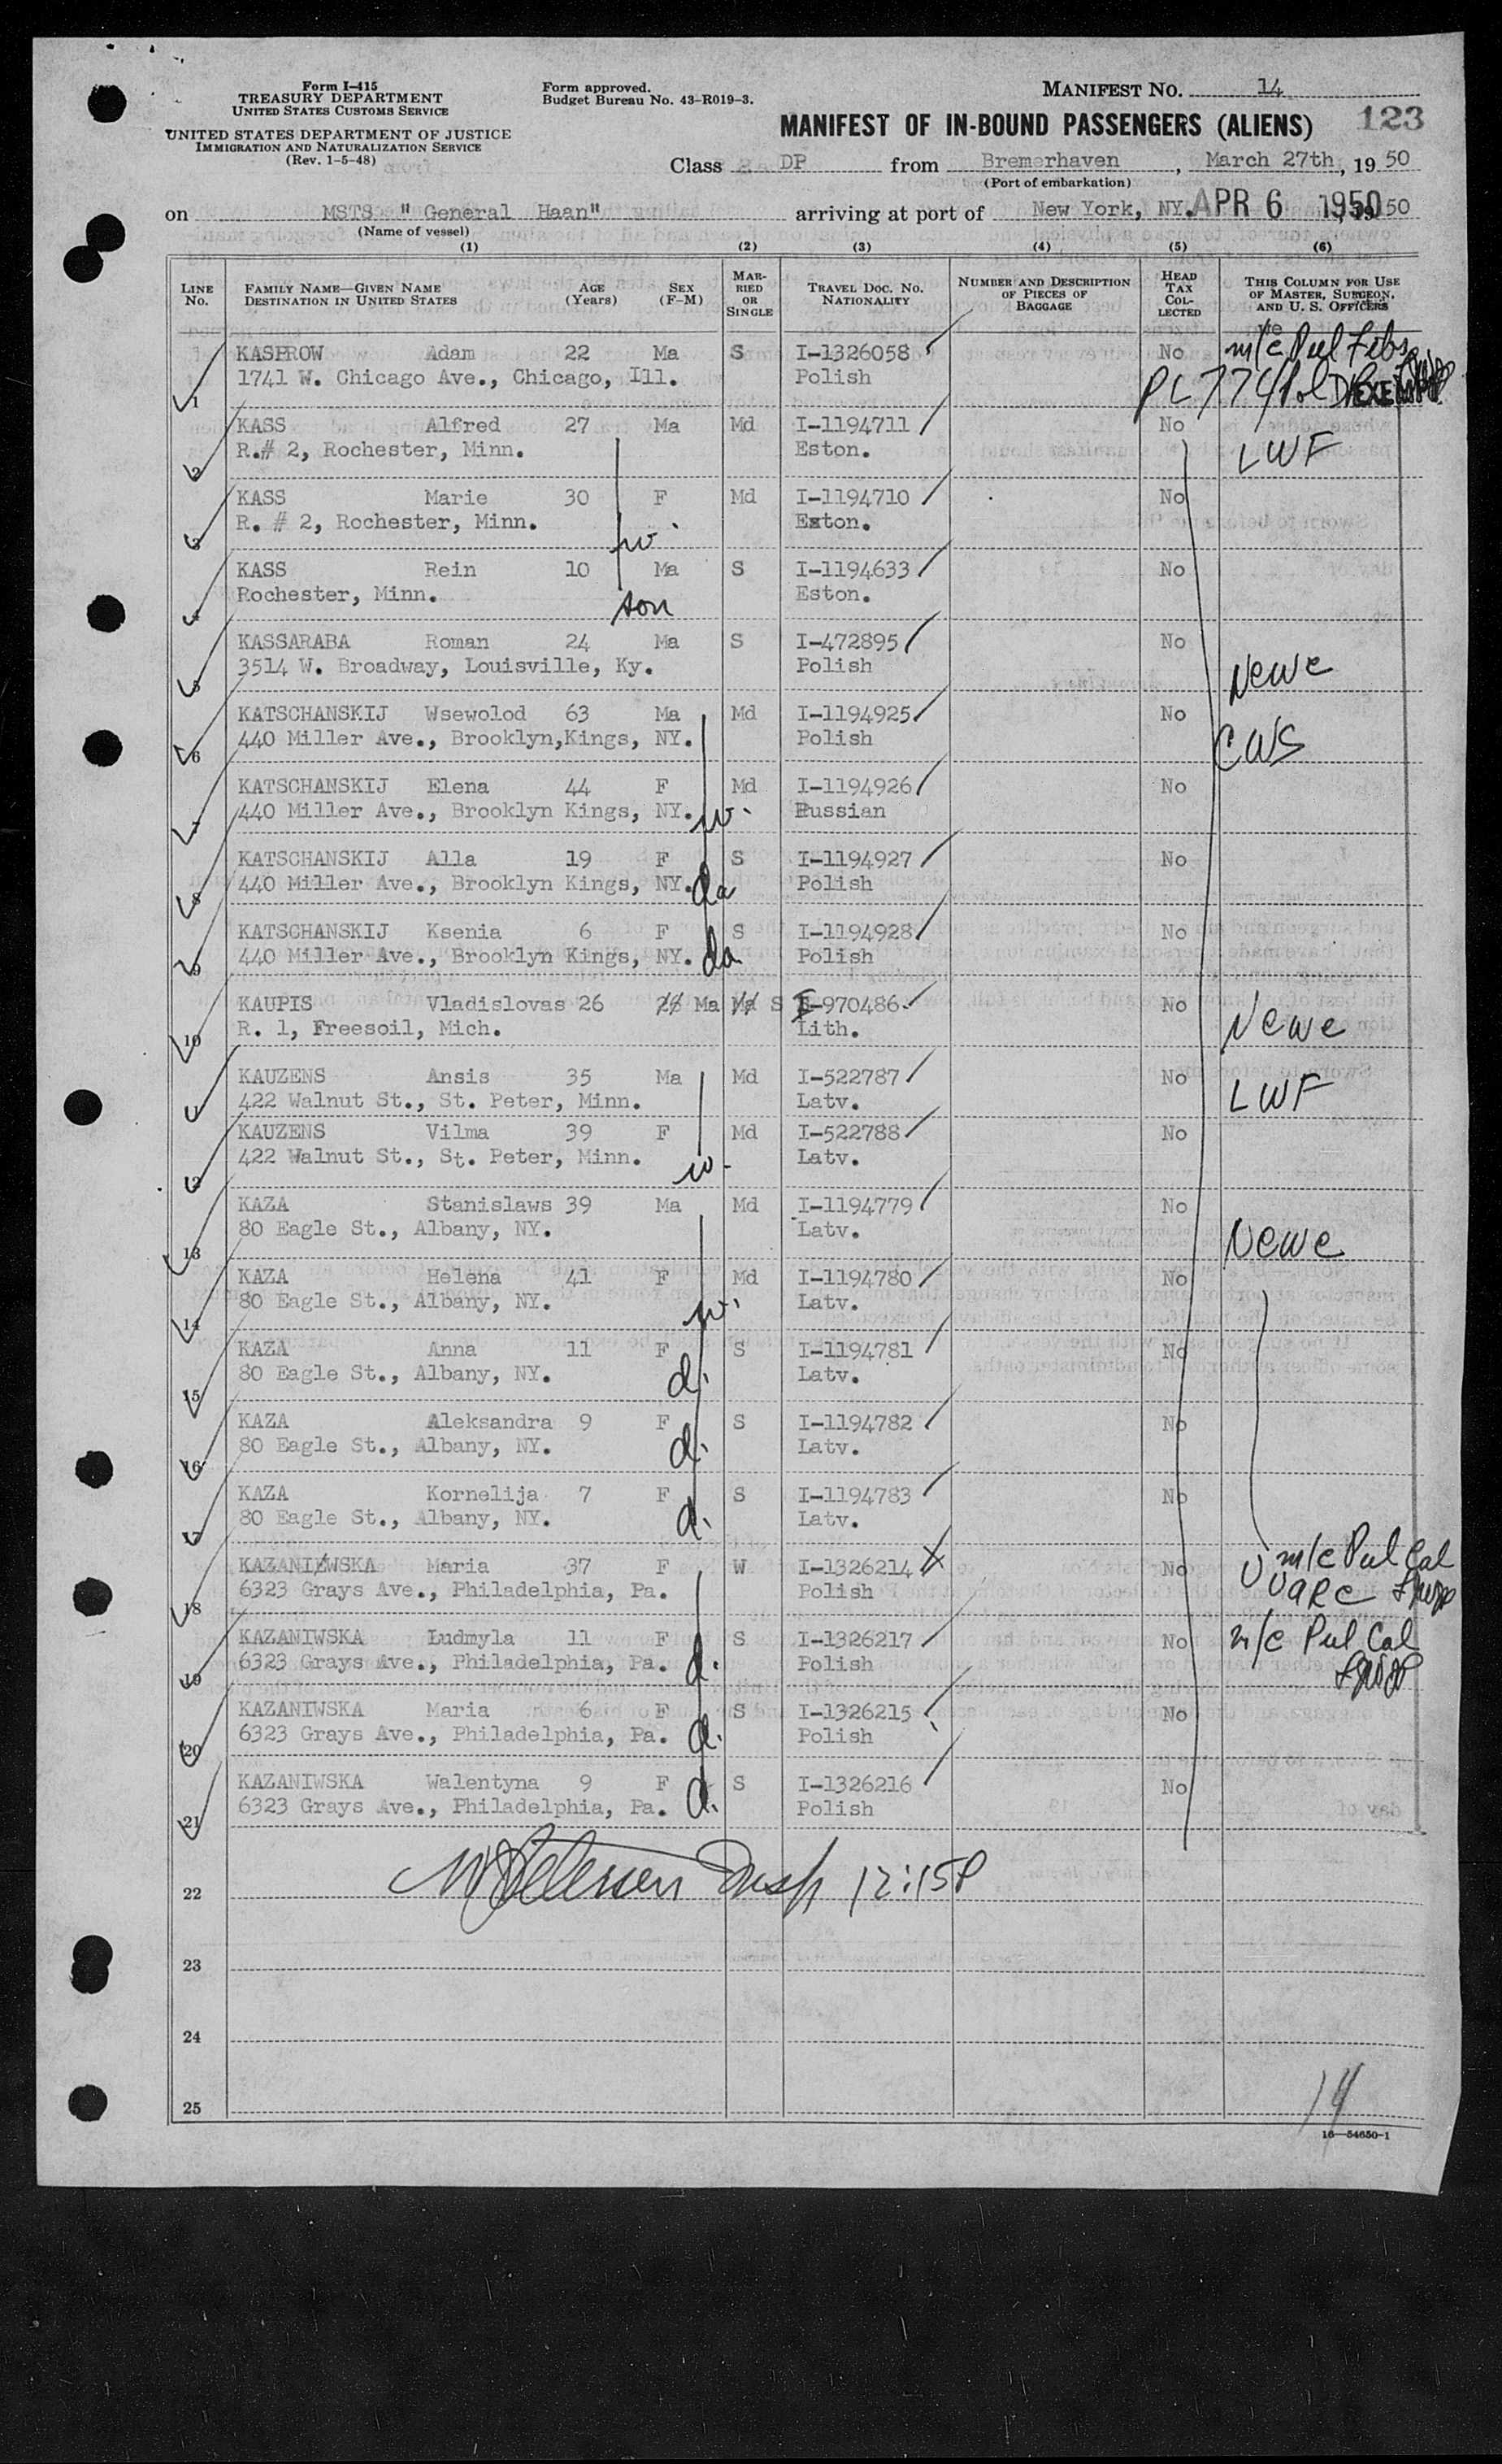 Form I-415
TREASURY DEPARTMENT
UNITED STATES CUSTOMS SERVICE
UNITED STATES DEPARTMENT OF JUSTICE
IMMIGRATION AND NATURALIZATION SERVICE
(Rev. 1-5-48)
Form approved.
Budget Bureau No. 43-R019-3.
MANIFEST NO. 14
MANIFEST OF IN-BOUND PASSENGERS (ALIENS) 123
Class DP from Bremerhaven, March 27th, 19 50
(Port of embarkation)
on MSTS "General Haan" arriving at port of New York, NY. APR 6 1950, 19 50
(Name of vessel)
(1) (2) (3) (4) (5) (6)
LINE No. FAMILY NAME—GIVEN NAME DESTINATION IN UNITED STATES AGE (Years) SEX (F-M) MARRIED OR SINGLE TRAVEL DOC. NO. NATIONALITY NUMBER AND DESCRIPTION OF PIECES OF BAGGAGE HEAD TAX COLLECTED THIS COLUMN FOR USE OF MASTER, SURGEON, AND U. S. OFFICERS
1 KASPROW Adam 22 Ma S I-1326058 No m/c Pul
1741 W. Chicago Ave., Chicago, Ill. Polish PL 774
2 KASS Alfred 27 Ma Md I-1194711 No
R.# 2, Rochester, Minn. Eston. LWF
3 KASS Marie 30 F Md I-1194710 No
R. # 2, Rochester, Minn. w. Eston.
4 KASS Rein 10 Ma S I-1194633 No
Rochester, Minn. son Eston.
5 KASSARABA Roman 24 Ma S I-472895 No
3514 W. Broadway, Louisville, Ky. Polish NCWC
6 KATSCHANSKIJ Wsewolod 63 Ma Md I-1194925 No
440 Miller Ave., Brooklyn,Kings, NY. Polish CWS
7 KATSCHANSKIJ Elena 44 F Md I-1194926 No
440 Miller Ave., Brooklyn Kings, NY. w. Russian
8 KATSCHANSKIJ Alla 19 F S I-1194927 No
440 Miller Ave., Brooklyn Kings, NY. da Polish
9 KATSCHANSKIJ Ksenia 6 F S I-1194928 No
440 Miller Ave., Brooklyn Kings, NY. da Polish
10 KAUPIS Vladislovas 26 Ma S I-970486 No
R. 1, Freesoil, Mich. Lith. NCWC
11 KAUZENS Ansis 35 Ma Md I-522787 No
422 Walnut St., St. Peter, Minn. Latv. LWF
12 KAUZENS Vilma 39 F Md I-522788 No
422 Walnut St., St. Peter, Minn. w. Latv.
13 KAZA Stanislaws 39 Ma Md I-1194779 No
80 Eagle St., Albany, NY. Latv. NCWC
14 KAZA Helena 41 F Md I-1194780 No
80 Eagle St., Albany, NY. w. Latv.
15 KAZA Anna 11 F S I-1194781 No
80 Eagle St., Albany, NY. d. Latv.
16 KAZA Aleksandra 9 F S I-1194782 No
80 Eagle St., Albany, NY. d. Latv.
17 KAZA Kornelija 7 F S I-1194783 No
80 Eagle St., Albany, NY. d. Latv.
18 KAZANIEWSKA Maria 37 F W I-1326214 No m/c Pul Cal
6323 Grays Ave., Philadelphia, Pa. Polish
19 KAZANIWSKA Ludmyla 11 F S I-1326217 No m/c Pul Cal
6323 Grays Ave., Philadelphia, Pa. d. Polish
20 KAZANIWSKA Maria 6 F S I-1326215 No
6323 Grays Ave., Philadelphia, Pa. d. Polish
21 KAZANIWSKA Walentyna 9 F S I-1326216 No
6323 Grays Ave., Philadelphia, Pa. d. Polish
22 Insp 12:15P
23
24
25
14
16—54650-1